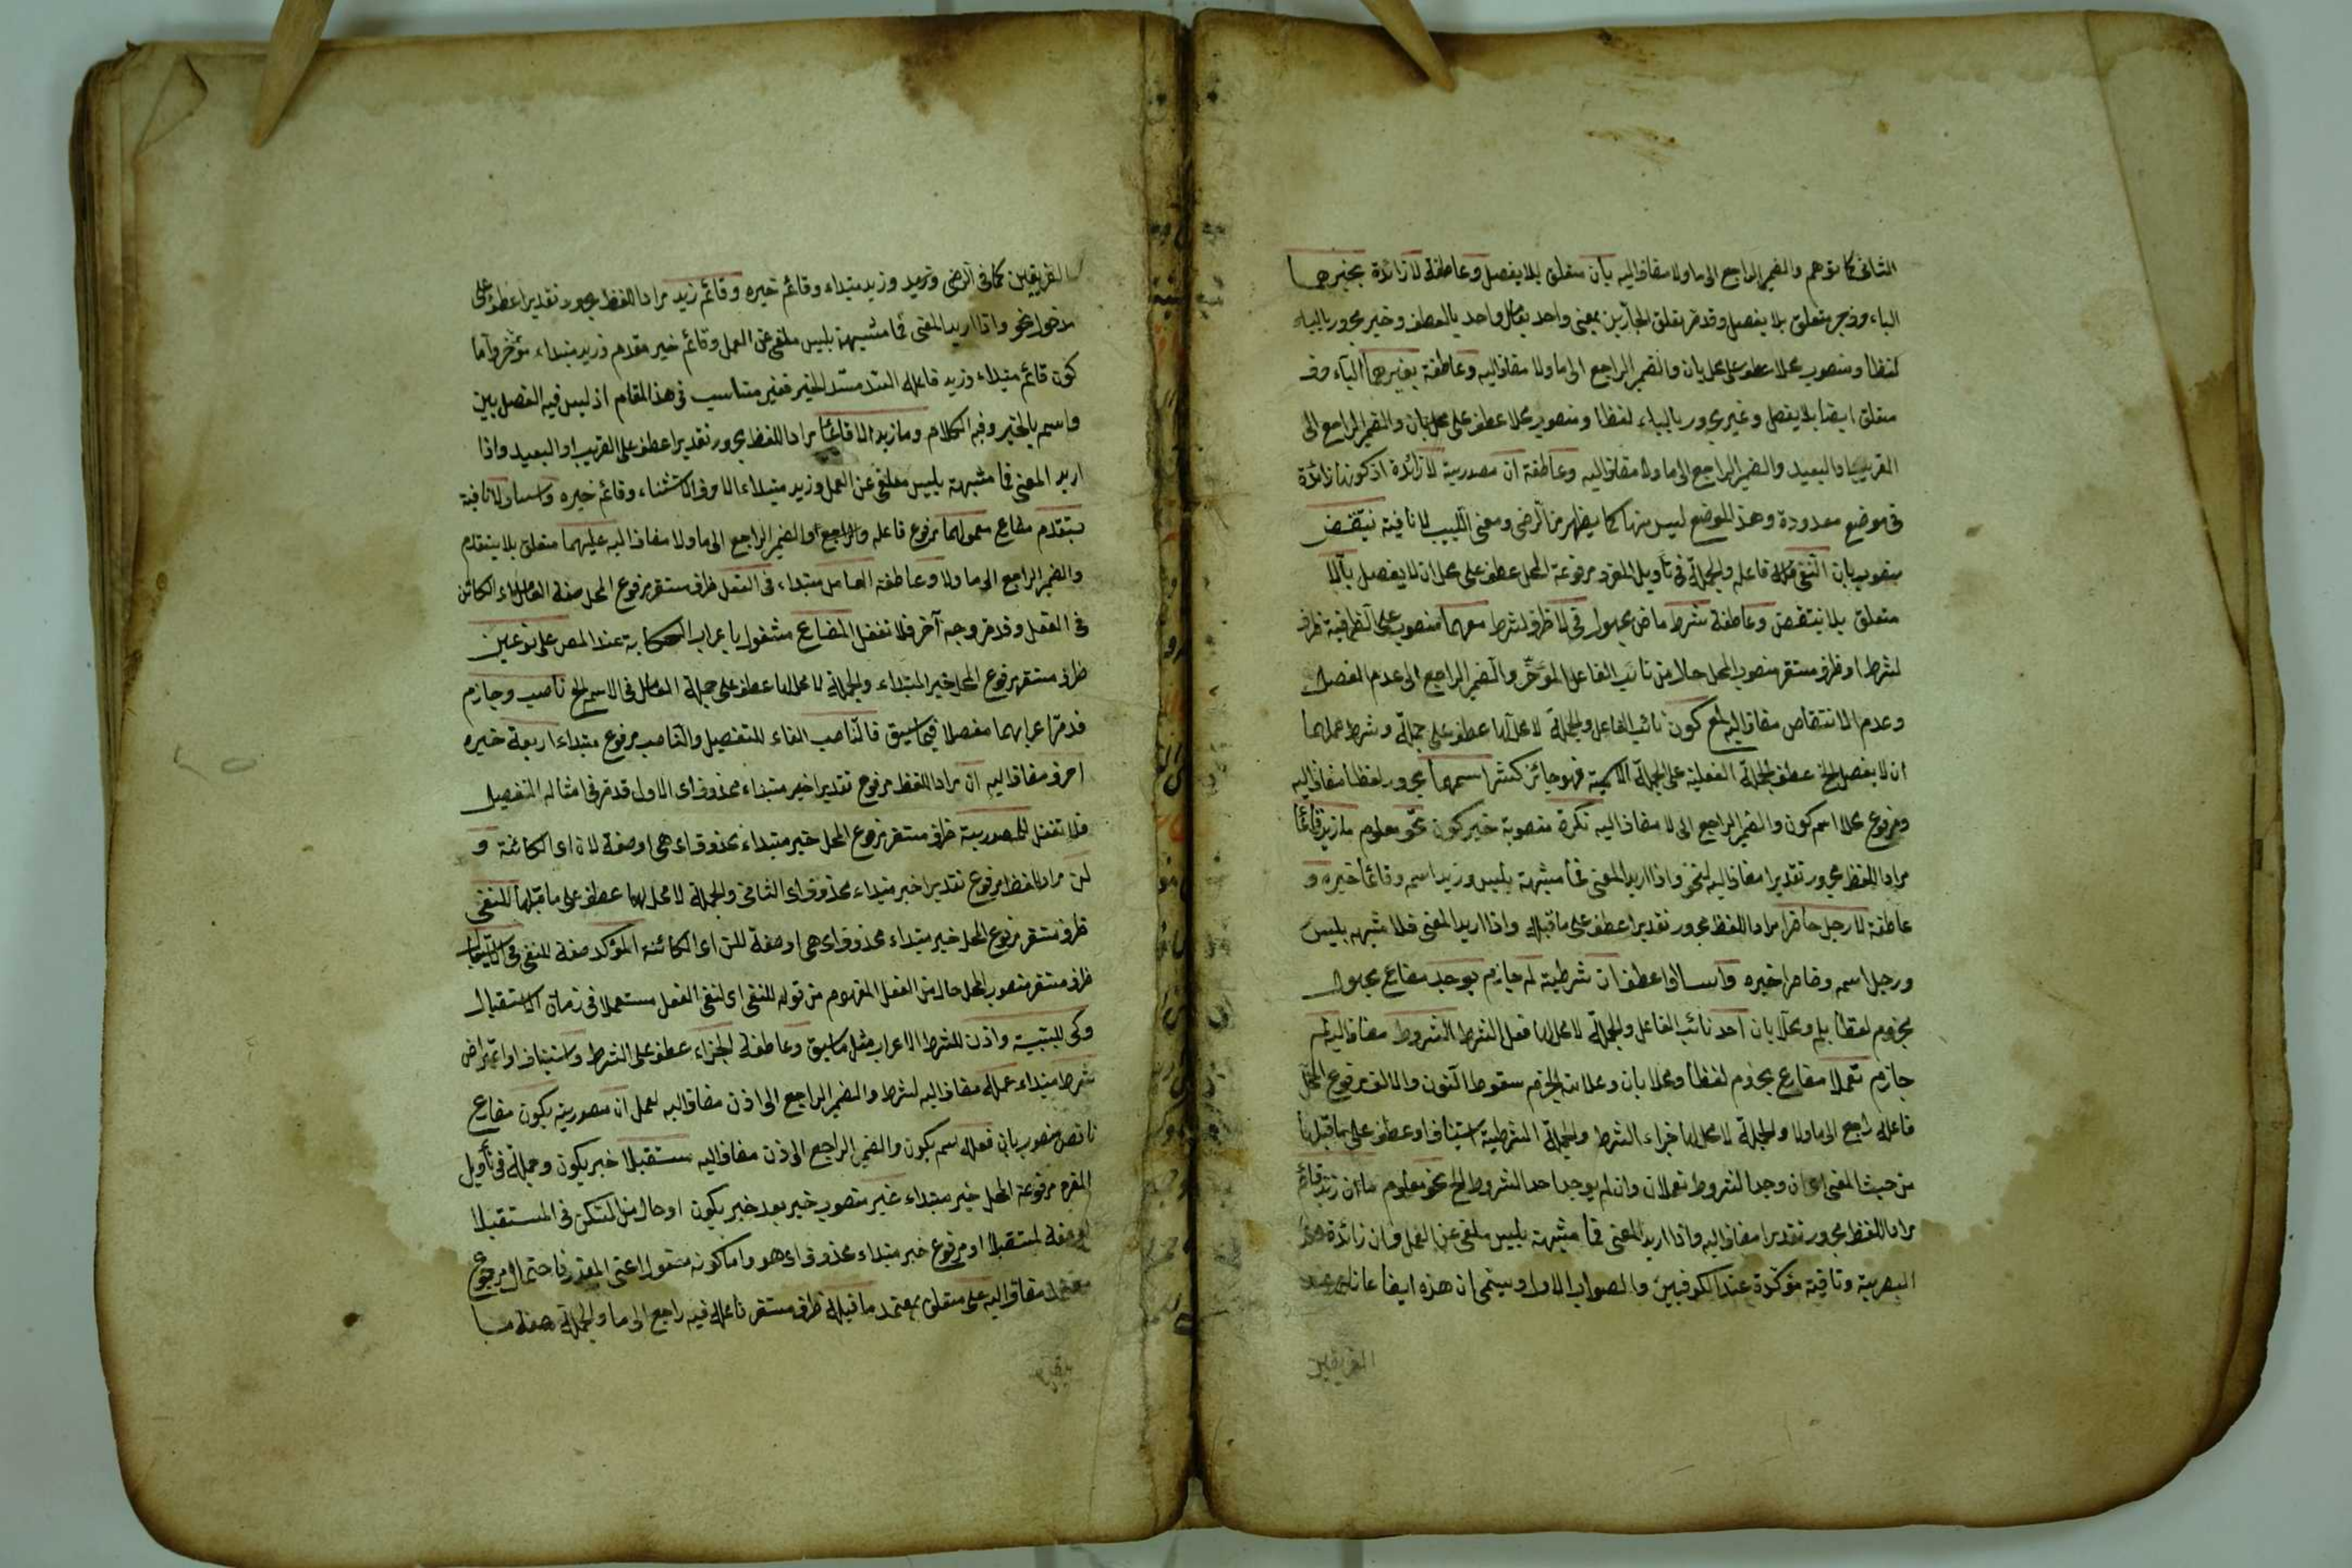 الثانى كما توهم والضمير الراجع الى ما ولا مضاف اليه بان متعلق بلا يفصل وعاطفة لا زائدة بخبرهما
الباء وخبر متعلق بلا يفصل وقد مر تعلق الجارين بمعنى واحد بعامل واحد بالعطف وخبر مجرور بالباء
لفظا ومنصوب محلا عطف على محل بان والضمير الراجع الى ما ولا مضاف اليه وعاطفة بغيرهما الباء حرف
متعلق ايضا بلا يفصل وغير مجرور بالباء لفظا ومنصوب محلا عطف على محل بان والضمير الراجع الى
القريب او البعيد والضمير الراجع الى ما ولا مضاف اليه وعاطفة ان مصدرية لا زائدة اذ كونها زائدة
فى موضع معدودة وهذا الموضع ليس منها كما يظهر من الرضى ومغنى اللبيب لا نافية ينتقض
منصوب بان النفى فاعله والجملة فى تأويل المفرد مرفوعة المحل عطف على محل ان لا يفصل بالا
متعلق بلا ينتقض وعاطفة شرط ماض مجهول فى لا ظرف لشرط معهما منصوب على الظرفية ظرف
لشرط او ظرف مستقر منصوب المحل حالا من نائب الفاعل المؤخر والضمير الراجع الى عدم الفصل
وعدم الانتقاض مضاف اليه لمع كون نائب الفاعل والجملة لا محل لها عطف على جملة وشرط عملهما
ان لا يفصل الخ عطف الجملة الفعلية على الجملة الاسمية فهو جائز كثير اسمها مجرور لفظا مضاف اليه
ومرفوع محلا اسم كون والضمير الراجع الى لا مضاف اليه نكرة منصوبة خبر كون نحو معلوم ما زيد قائما
مراد اللفظ مجرور تقديرا مضاف اليه لنحو واذا اريد المعنى فما مشبهة بليس وزيد اسمه وقائما خبره و
عاطفة لا رجل حاضرا مراد اللفظ مجرور تقديرا عطف على ما قبله واذا اريد المعنى فلا مشبهه بليس
ورجل اسمه وحاضرا خبره وا عطف ان شرطية لم جازم يوجد مضارع مجهول
مجزوم لفظا بلم ومحلا بان احد نائب الفاعل والجملة لا محل لها فعل الشرط الشروط مضاف اليه لم
جازم تعملا مضارع مجزوم لفظا ومحلا بان وعلامة الجزم سقوط النون والالف مرفوع المحل
فاعله راجع الى ما ولا والجملة لا محل لها جزاء الشرط والجملة الشرطية استيناف او عطف على ما قبلها
من حيث المعنى اى ان وجد الشروط تعملان وان لم يوجد احد الشروط الخ نحو معلوم ما ان زيد قائم
مراد اللفظ مجرور تقديرا مضاف اليه واذا اريد المعنى فما مشبهة بليس ملغى عن العمل وان زائدة عند
البصرية ونافية مؤكدة عند الكوفيين والصواب الاول ان هذه ايضا
الفريقين
الفريقين كما فى الرضى وزيد مبتداء وقائم خبره وقائم زيد مراد اللفظ مجرور تقديرا عطف على
مدخول نحو واذا اريد المعنى فما مشبهة بليس ملغى عن العمل وقائم خبر مقدم وزيد مبتداء مؤخر واما
كون قائم مبتداء وزيد فاعله السد مسد الخبر فغير مناسب فى هذا المقام اذ ليس فيه الفصل بين
واسم بالخبر وفيه الكلام وما زيد الا قائم مراد اللفظ مجرور تقديرا عطف على القريب او البعيد واذا
اريد المعنى فما مشبهة بليس ملغى عن العمل وزيد مبتداء الا حرف الاستثناء وقائم خبره ولا نافية
يتقدم مضارع معمولهما مرفوع فاعله والراجع او الضمير الراجع الى ما ولا مضاف اليه عليهما متعلق بلا يتقدم
والضمير الراجع الى ما ولا وعاطفة العامل مبتداء فى الفعل ظرف مستقر مرفوع المحل صفة العامل اى الكائن
فى الفعل وقد مر وجه آخر فلا تغفل المضارع مشغول باعراب الحكاية عند المص على نوعين
ظرف مستقر مرفوع المحل خبر المبتداء والجملة لا محل لها عطف على جملة العامل فى الاسم الخ ناصب وجازم
قد مر اعرابهما مفصلا فيما سبق فالناصب الفاء للتفصيل والناصب مرفوع مبتداء اربعة خبره
احرف مضاف اليه ان مراد اللفظ مرفوع تقديرا خبر مبتداء محذوف اى الاول قد مر فى امثاله التفصيل
فلا تغفل للمصدرية ظرف مستقر مرفوع المحل خبر مبتداء محذوف اى هى او صفة لان اى الكائنة و
لن مراد اللفظ مرفوع تقديرا خبر مبتداء محذوف اى الثانى والجملة لا محل لها عطف على ما قبلها للنفى
ظرف مستقر مرفوع المحل خبر مبتداء محذوف اى هى او صفة للن اى الكائنة المؤكد صفة للنفى فى الاستقبال
ظرف مستقر منصوب المحل حال من الفعل المفهوم من قوله للنفى اى لنفى الفعل مستعملا فى زمان الاستقبال
وكى للسببية واذن للشرط الاعراب مثل ما سبق وعاطفة الجزاء عطف على الشرط واستيناف او اعتراض
شرط مبتداء عمله مضاف اليه لشرط والضمير الراجع الى اذن مضاف اليه لعمل ان مصدرية يكون مضارع
ناقص منصوب بان فعله اسم يكون والضمير الراجع الى اذن مضاف اليه مستقبلا خبر يكون وجملة فى تأويل
المفرد مرفوعة المحل خبر مبتداء غير منصوب خبر بعد خبر يكون او حال من المستكن فى المستقبلا
او صفة لمستقبلا او مرفوع خبر مبتداء محذوف اى هو واما كونه مفعول اعنى المقدر فاحتمال مرجوع
مضاف اليه على متعلق بمعتمد ما قبله ظرف مستقر فاعله فيه راجع الى ما والجملة صفة ما